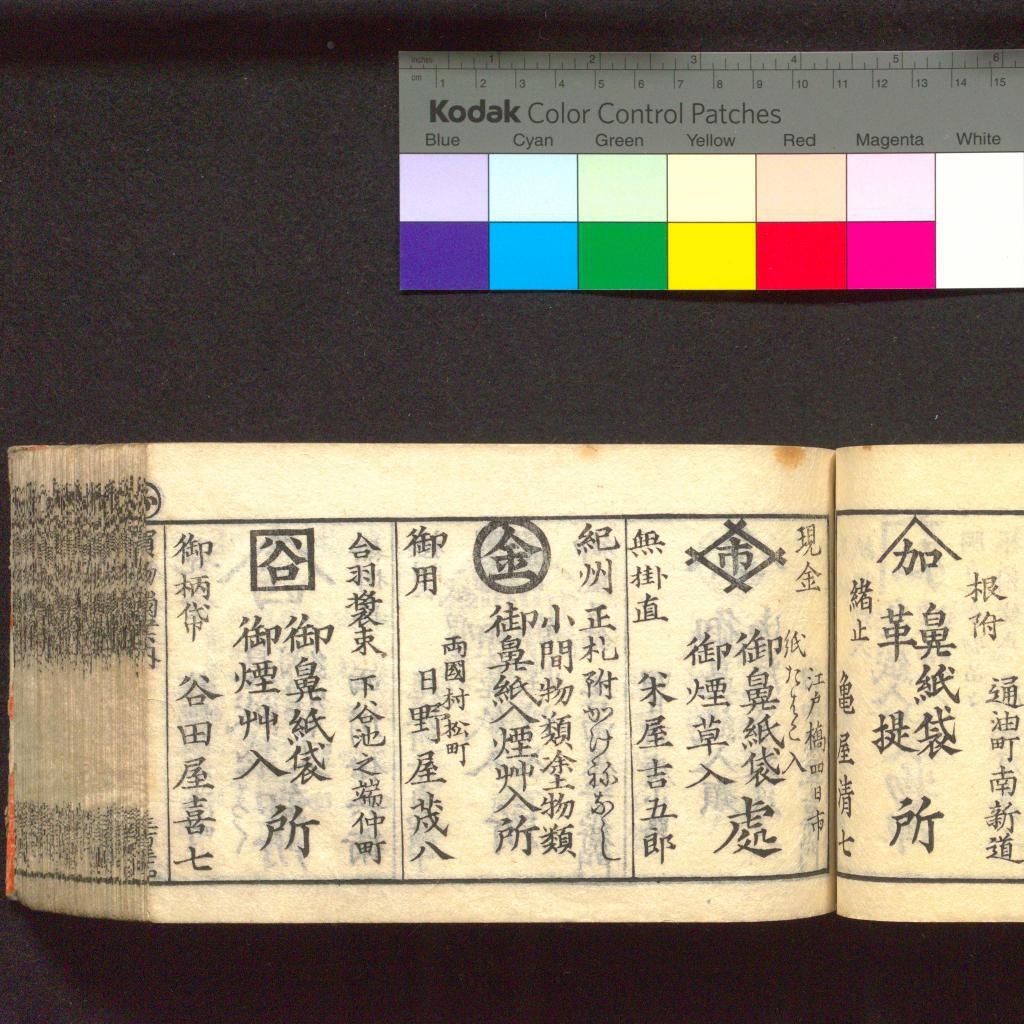 inches 1 2 3 4 5 6
cm 1 2 3 4 5 6 7 8 9 10 11 12 13 14 15
Kodak Color Control Patches
Blue Cyan Green Yellow Red Magenta White
根附
通油町南新道
加
鼻紙袋
革提
所
緒止
亀屋清七
現金
江戸橋四日市
紙たはこ入
市
御鼻紙袋
御煙草入
處
無掛直
米屋吉五郎
紀州
正札附かけねなし
小間物類塗物類
金
御鼻紙入煙艸入所
御用
両國村松町
日野屋茂八
合羽装束
下谷池之端仲町
谷
御鼻紙袋
御煙艸入
所
御柄袋
谷田屋喜七